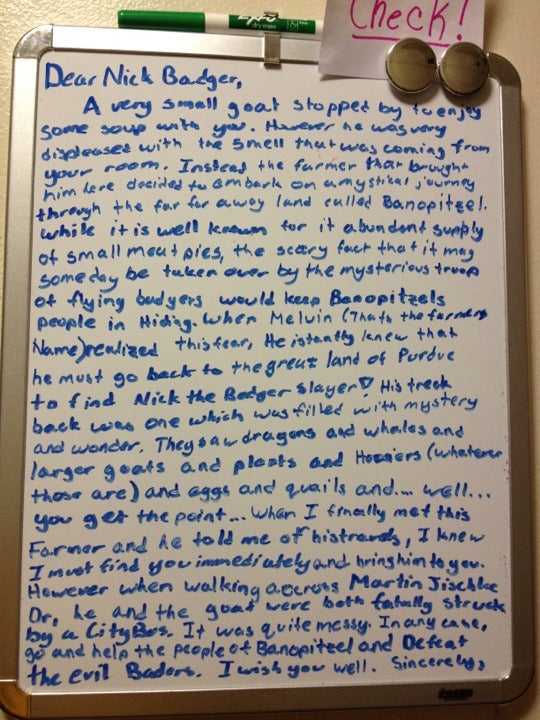 EXPO
dry erase
Check!
Dear Nick Badger,
A very small goat stopped by to enjoy
some soup with you. However he was very
displeased with the smell that was coming from
your room. Instead the farmer that brought
him here decided to embark on a mystical journey
through the far far away land called Banopitzel.
While it is well known for it abundent supply
of small meat pies, the scary fact that it may
someday be taken over by the mysterious troop
of flying badgers would keep Banopitzels
people in Hiding. When Melvin (Thats the farmers
Name) realized this fear, He istantly knew that
he must go back to the great land of Purdue
to find Nick the Badger slayer! His treck
back was one which was filled with mystery
and wonder. They saw dragons and whales and
larger goats and plants and Hoosiers (whatever
those are) and eggs and quails and... well...
you get the point... When I finally met this
Farmer and he told me of his travels, I knew
I must find you immediately and bring him to you.
However when walking across Martin Jischke
Dr, he and the goat were both fatally struck
by a CityBus. It was quite messy. In any case,
go and help the people of Banopitzel and Defeat
the evil Baders. I wish you well. Sincerely,
BOARD